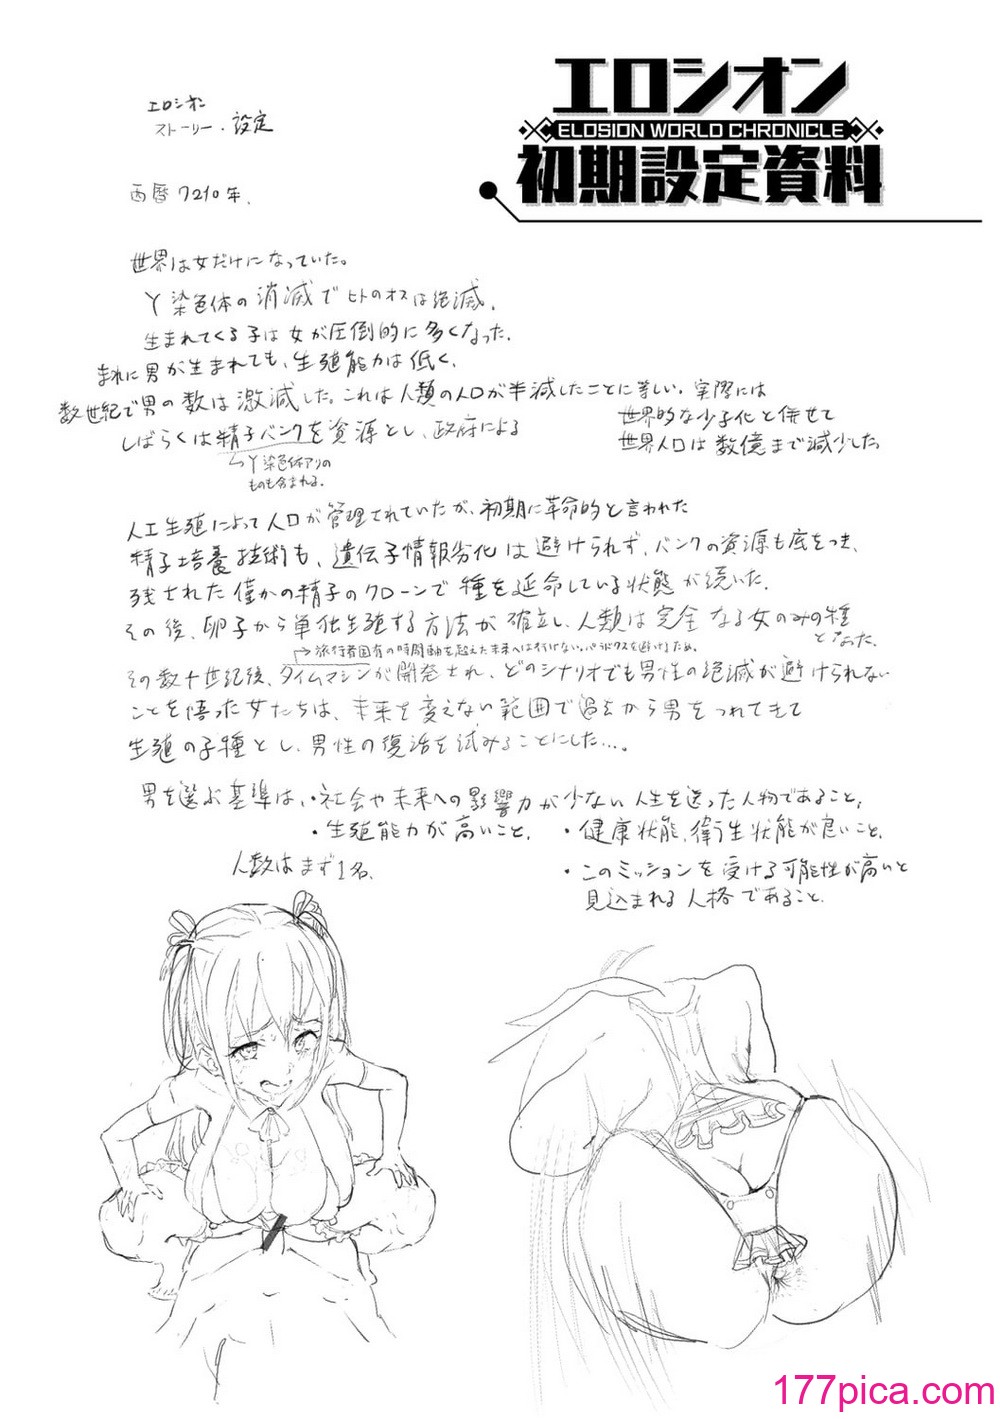 エロシオン
ELOSION WORLD CHRONICLE
初期設定資料
エロシオン
ストーリー・設定
西暦7210年、
世界は女だけになっていた。
Y染色体の消滅でヒトのオスは絶滅、
生まれてくる子は女が圧倒的に多くなった。
まれに男が生まれても、生殖能力は低く、
数世紀で男の数は激減した。これは人類の人口が半減したことに等しい。実際には
世界的な少子化と併せて
世界人口は数億まで減少した
しばらくは精子バンクを資源とし、政府による
↳Y染色体アリの
ものも含まれる。
人工生殖によって人口が管理されていたが、初期に革命的と言われた
精子培養技術も、遺伝子情報劣化は避けられず、バンクの資源も底をつき、
残された僅かの精子のクローンで種を延命している状態が続いた。
その後、卵子から単独生殖する方法が確立し、人類は完全なる女のみの種
となった。
→旅行者固有の時間軸を超えた未来へは行けない。パラドクスを避けるため。
その数十世紀後、タイムマシンが開発され、どのシナリオでも男性の絶滅が避けられない
ことを悟った女たちは、未来を変えない範囲で過去から男をつれてきて
生殖の子種とし、男性の復活を試みることにした…。
男を選ぶ基準は、・社会や未来への影響力が少ない人生を送った人物であること、
・生殖能力が高いこと、・健康状態、衛生状態が良いこと、
・このミッションを受ける可能性が高いと
見込まれる人格であること、
人数はまず1名、
177pica.com